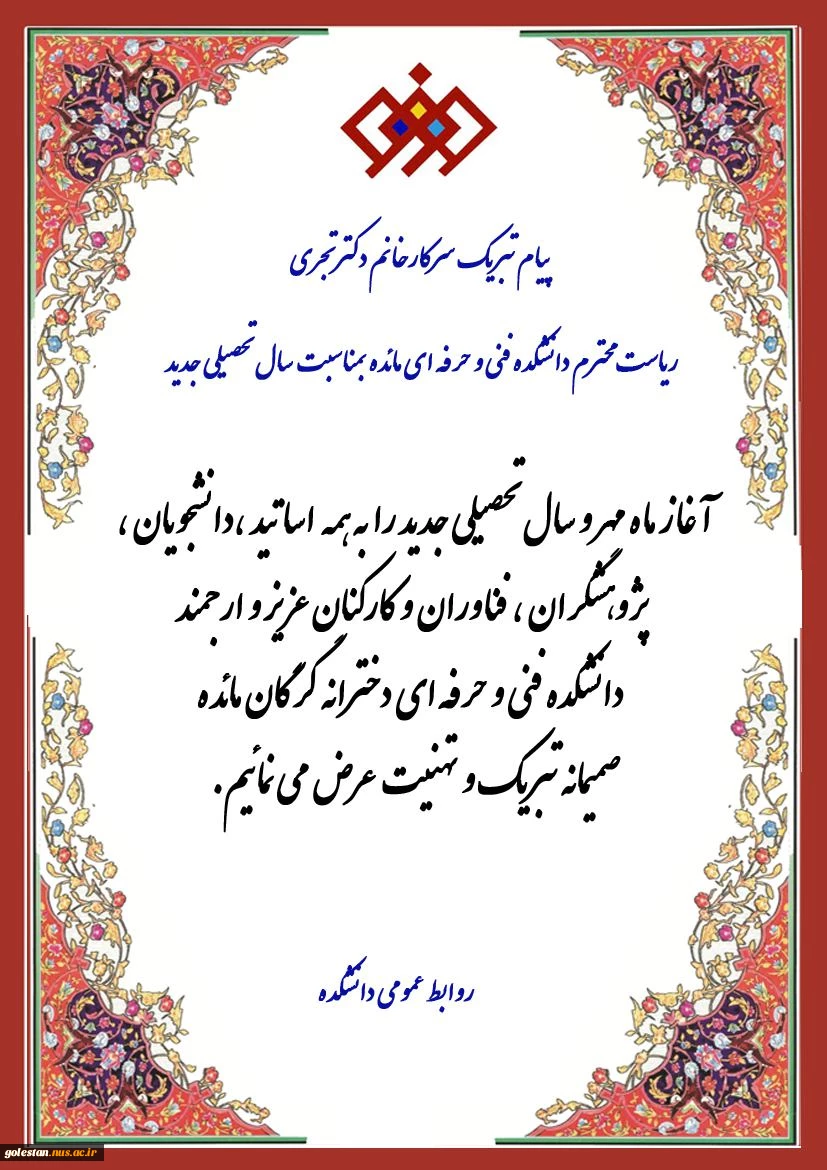 پیام تبریک سرکار خانم دکتر تجری
ریاست محترم دانشکده فنی و حرفه ای مائده بمناسبت سال تحصیلی جدید
آغاز ماه مهر و سال تحصیلی جدید را به همه اساتید ،دانشجویان ،
پژوهشگران ، فناوران و کارکنان عزیز و ارجمند
دانشکده فنی و حرفه ای دخترانه گرگان مائده
صمیمانه تبریک و تهنیت عرض می نمائیم .
روابط عمومی دانشکده
golestan.nus.ac.ir